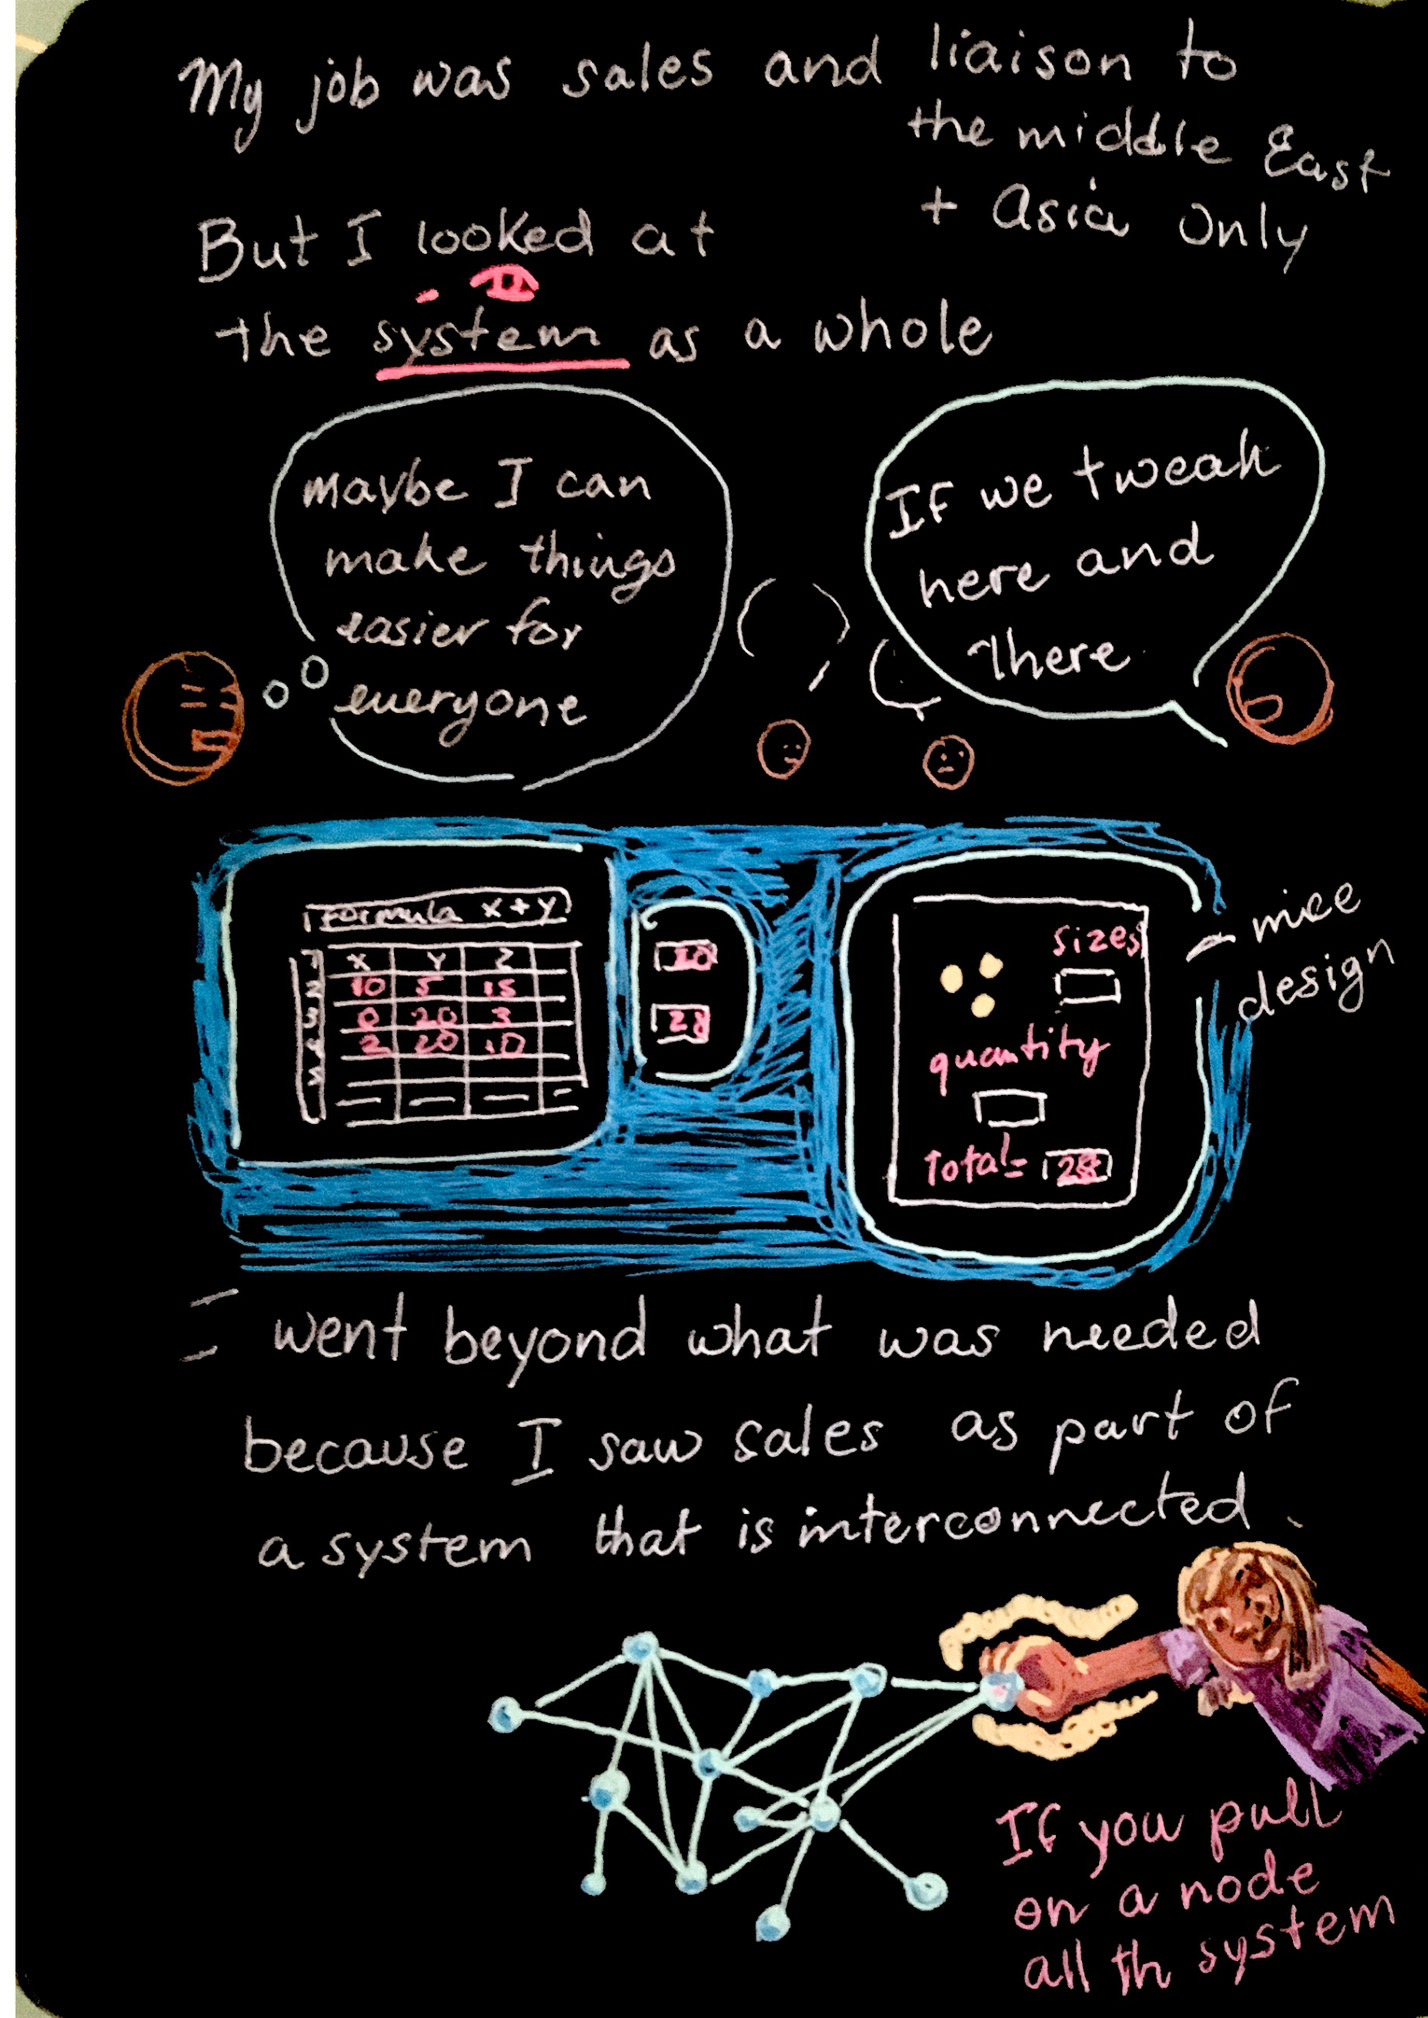 My job was sales and liaison to
the middle East
+ Asia only
But I looked at
the system as a whole
maybe I can
make things
easier for
everyone
If we tweak
here and
there
formula x+y
X Y Z
10 5 15
0 20 3
2 20 10
1
2
3
4
28
sizes
quantity
Total= 28
nice
design
I went beyond what was needed
because I saw sales as part of
a system that is interconnected
If you pull
on a node
all th system